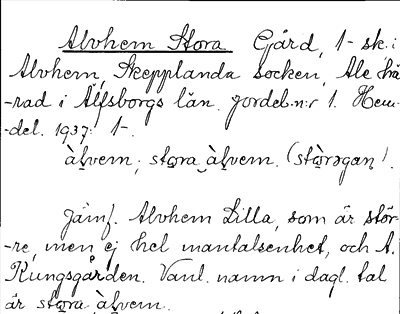 Alvhem Stora Gård, 1- sk. i
Alvhem, Skepplanda socken, Ale hä
-rad i Älfsborgs län. jordeb.n:r 1. Hem-
-del. 1937: 1-.
àlvem; stora àlvem. (stòrəgan).
Jämf. Alvhem Lilla, som är stör-
-re, men ej hel mantalsenhet, och A.
Kungsgården. Vanl. namn i dagl. tal
är stora àlvem.